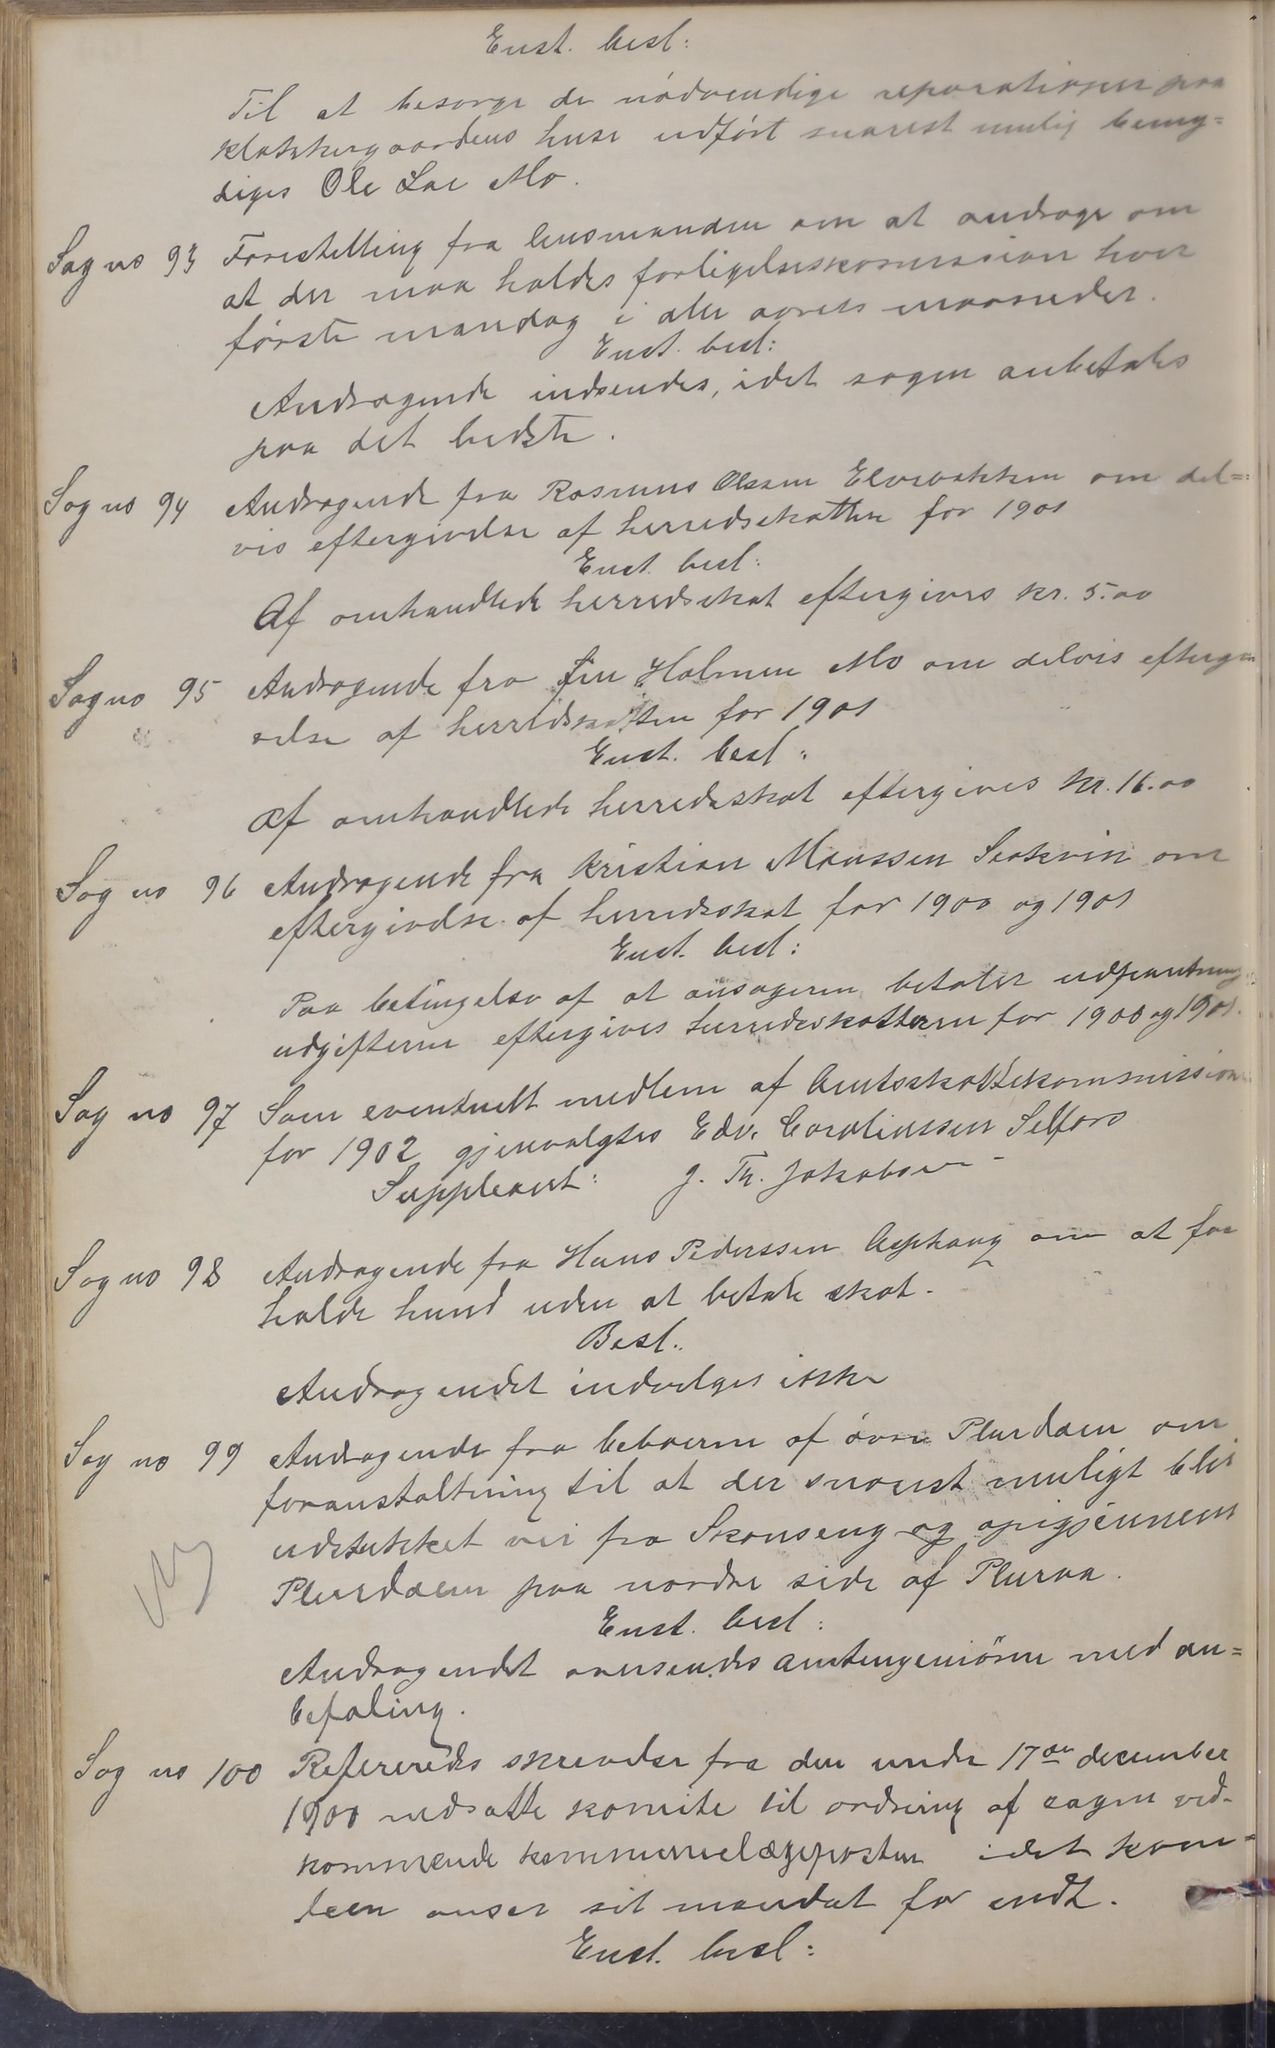 Enst. besl:
Til at besørge de nødvendige reparationer paa
klokkergaardens huse udført snarest mulig bemyn=
diges Ole Lae Mo.
Sag no 93 Forestilling fra lensmanden om at andrage om
at der maa holdes forligelseskommission hver
første mandag i alle aarets maaneder.
Enst. besl:
Andragende indsendes, idet sagen anbefales
paa det bedste.
Sag no 94 Andragende fra Rasmus Olssen Elvebakken om del=
vis eftergivelse af herredsskatten for 1901
Enst. besl:
Af omhandlede herredsskat eftergives kr. 5.00
Sag no 95 Andragende fra Holmen Mo om delvis eftergi
velse af herredsskatten for 1901
Enst. besl:
Af omhandlede herredsskat eftergives kr. 16.00
Sag no 96 Andragende fra Kristian Monssen om
eftergivelse af herredsskat for 1900 og 1901
Enst. besl:
Paa betingelse af at ansøgeren betaler udpantnings
udgifterne eftergives herredsskatterne for 1900 og 1901.
Sag no 97 Som eventuelt medlem af Amtsskattekommissionen
for 1902 gjenvalgtes Edv. Carolinssen Selfors
Suppleant: J. Th. Jakobsen
Sag no 98 Andragende fra Hans Pederssen Asphaug om at faa
holde hund uden at betale skat.
Besl:
Andragendet indvilges ikke
Sag no 99 Andragende fra beboerne af øvre Plurdalen om
foranstaltning til at der snarest muligt blir
udstukket vei fra Skonseng og opigjennem
Plurdalen paa nordre side af Pluraa.
Enst. besl:
Andragendet oversendes amtsingeniøren med an=
befaling.
Sag no 100 Refereredes skrivelse fra den under 17de december
1900 nedsatte komite til ordning af sagen ved-
kommende kommunelægeposten idet kom=
iteen anser sit mandat for endt.
Enst. besl: